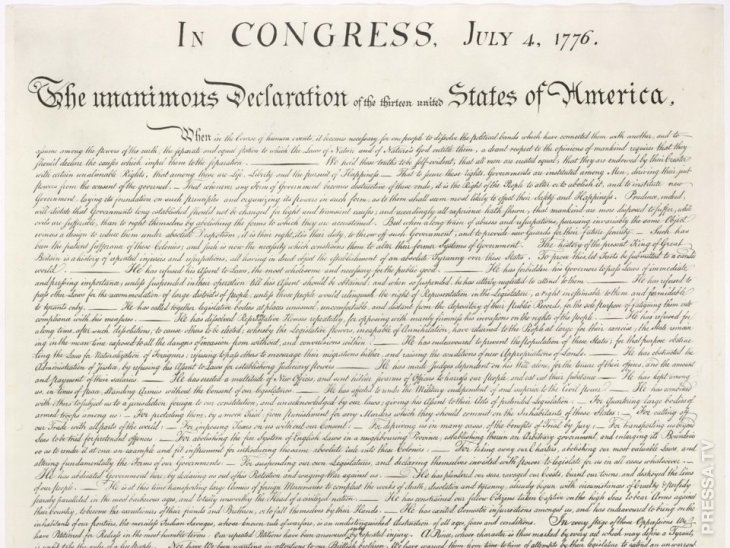 IN CONGRESS, JULY 4, 1776.
The unanimous Declaration of the thirteen united States of America,
When in the Course of human events, it becomes necessary for one people to dissolve the political bands which have connected them with another, and to
assume among the powers of the earth, the separate and equal station to which the Laws of Nature and of Nature's God entitle them, a decent respect to the opinions of mankind requires that they
should declare the causes which impel them to the separation. ——— We hold these truths to be self-evident, that all men are created equal, that they are endowed by their Creator
with certain unalienable Rights, that among these are Life, Liberty and the pursuit of Happiness.— That to secure these rights, Governments are instituted among Men, deriving their just
powers from the consent of the governed, — That whenever any Form of Government becomes destructive of these ends, it is the Right of the People to alter or to abolish it, and to institute new
Government, laying its foundation on such principles and organizing its powers in such form, as to them shall seem most likely to effect their Safety and Happiness. Prudence, indeed,
will dictate that Governments long established should not be changed for light and transient causes; and accordingly all experience hath shewn, that mankind are more disposed to suffer, while
evils are sufferable, than to right themselves by abolishing the forms to which they are accustomed. But when a long train of abuses and usurpations, pursuing invariably the same Object
evinces a design to reduce them under absolute Despotism, it is their right, it is their duty, to throw off such Government, and to provide new Guards for their future security. — Such has
been the patient sufferance of these Colonies; and such is now the necessity which constrains them to alter their former Systems of Government. The history of the present King of Great
Britain is a history of repeated injuries and usurpations, all having in direct object the establishment of an absolute Tyranny over these States. To prove this, let Facts be submitted to a candid
world. ——— He has refused his Assent to Laws, the most wholesome and necessary for the public good. ——— He has forbidden his Governors to pass Laws of immediate
and pressing importance, unless suspended in their operation till his Assent should be obtained; and when so suspended, he has utterly neglected to attend to them. ——— He has refused to
pass other Laws for the accommodation of large districts of people, unless those people would relinquish the right of Representation in the Legislature, a right inestimable to them and formidable
to tyrants only. ——— He has called together legislative bodies at places unusual, uncomfortable, and distant from the depository of their Public Records, for the sole purpose of fatiguing them into
compliance with his measures. ——— He has dissolved Representative Houses repeatedly, for opposing with manly firmness his invasions on the rights of the people. ——— He has refused for
a long time, after such dissolutions, to cause others to be elected; whereby the Legislative powers, incapable of Annihilation, have returned to the People at large for their exercise; the State remain=
ing in the mean time exposed to all the dangers of invasion from without, and convulsions within. ——— He has endeavoured to prevent the population of these States; for that purpose obstruc=
ting the Laws for Naturalization of Foreigners; refusing to pass others to encourage their migrations hither, and raising the conditions of new Appropriations of Lands. ——— He has obstructed the
Administration of Justice, by refusing his Assent to Laws for establishing Judiciary powers. ——— He has made Judges dependent on his Will alone, for the tenure of their offices, and the amount
and payment of their salaries. ——— He has erected a multitude of New Offices, and sent hither swarms of Officers to harrass our people, and eat out their substance. ——— He has kept among
us, in times of peace, Standing Armies without the Consent of our legislatures. ——— He has affected to render the Military independent of and superior to the Civil power. ——— He has combined
with others to subject us to a jurisdiction foreign to our constitution, and unacknowledged by our laws; giving his Assent to their Acts of pretended Legislation: — For Quartering large bodies of
armed troops among us: — For protecting them, by a mock Trial, from punishment for any Murders which they should commit on the Inhabitants of these States: — For cutting off
our Trade with all parts of the world: — For imposing Taxes on us without our Consent: — For depriving us in many cases, of the benefits of Trial by Jury: — For transporting us beyond
Seas to be tried for pretended offences — For abolishing the free System of English Laws in a neighbouring Province, establishing therein an Arbitrary government, and enlarging its Boundaries
so as to render it at once an example and fit instrument for introducing the same absolute rule into these Colonies: — For taking away our Charters, abolishing our most valuable Laws, and
altering fundamentally the Forms of our Governments: — For suspending our own Legislatures, and declaring themselves invested with power to legislate for us in all cases whatsoever. —
He has abdicated Government here, by declaring us out of his Protection and waging War against us. ——— He has plundered our seas, ravaged our Coasts, burnt our towns, and destroyed the lives
of our people. ——— He is at this time transporting large Armies of foreign Mercenaries to compleat the works of death, desolation and tyranny, already begun with circumstances of Cruelty & perfidy
scarcely paralleled in the most barbarous ages, and totally unworthy the Head of a civilized nation. ——— He has constrained our fellow Citizens taken Captive on the high Seas to bear Arms against
their Country, to become the executioners of their friends and Brethren, or to fall themselves by their Hands. ——— He has excited domestic insurrections amongst us, and has endeavoured to bring on the
inhabitants of our frontiers, the merciless Indian Savages, whose known rule of warfare, is an undistinguished destruction of all ages, sexes and conditions. In every stage of these Oppressions We
have Petitioned for Redress in the most humble terms: Our repeated Petitions have been answered only by repeated injury. A Prince, whose character is thus marked by every act which may define a Tyrant,
PRESSA.TV